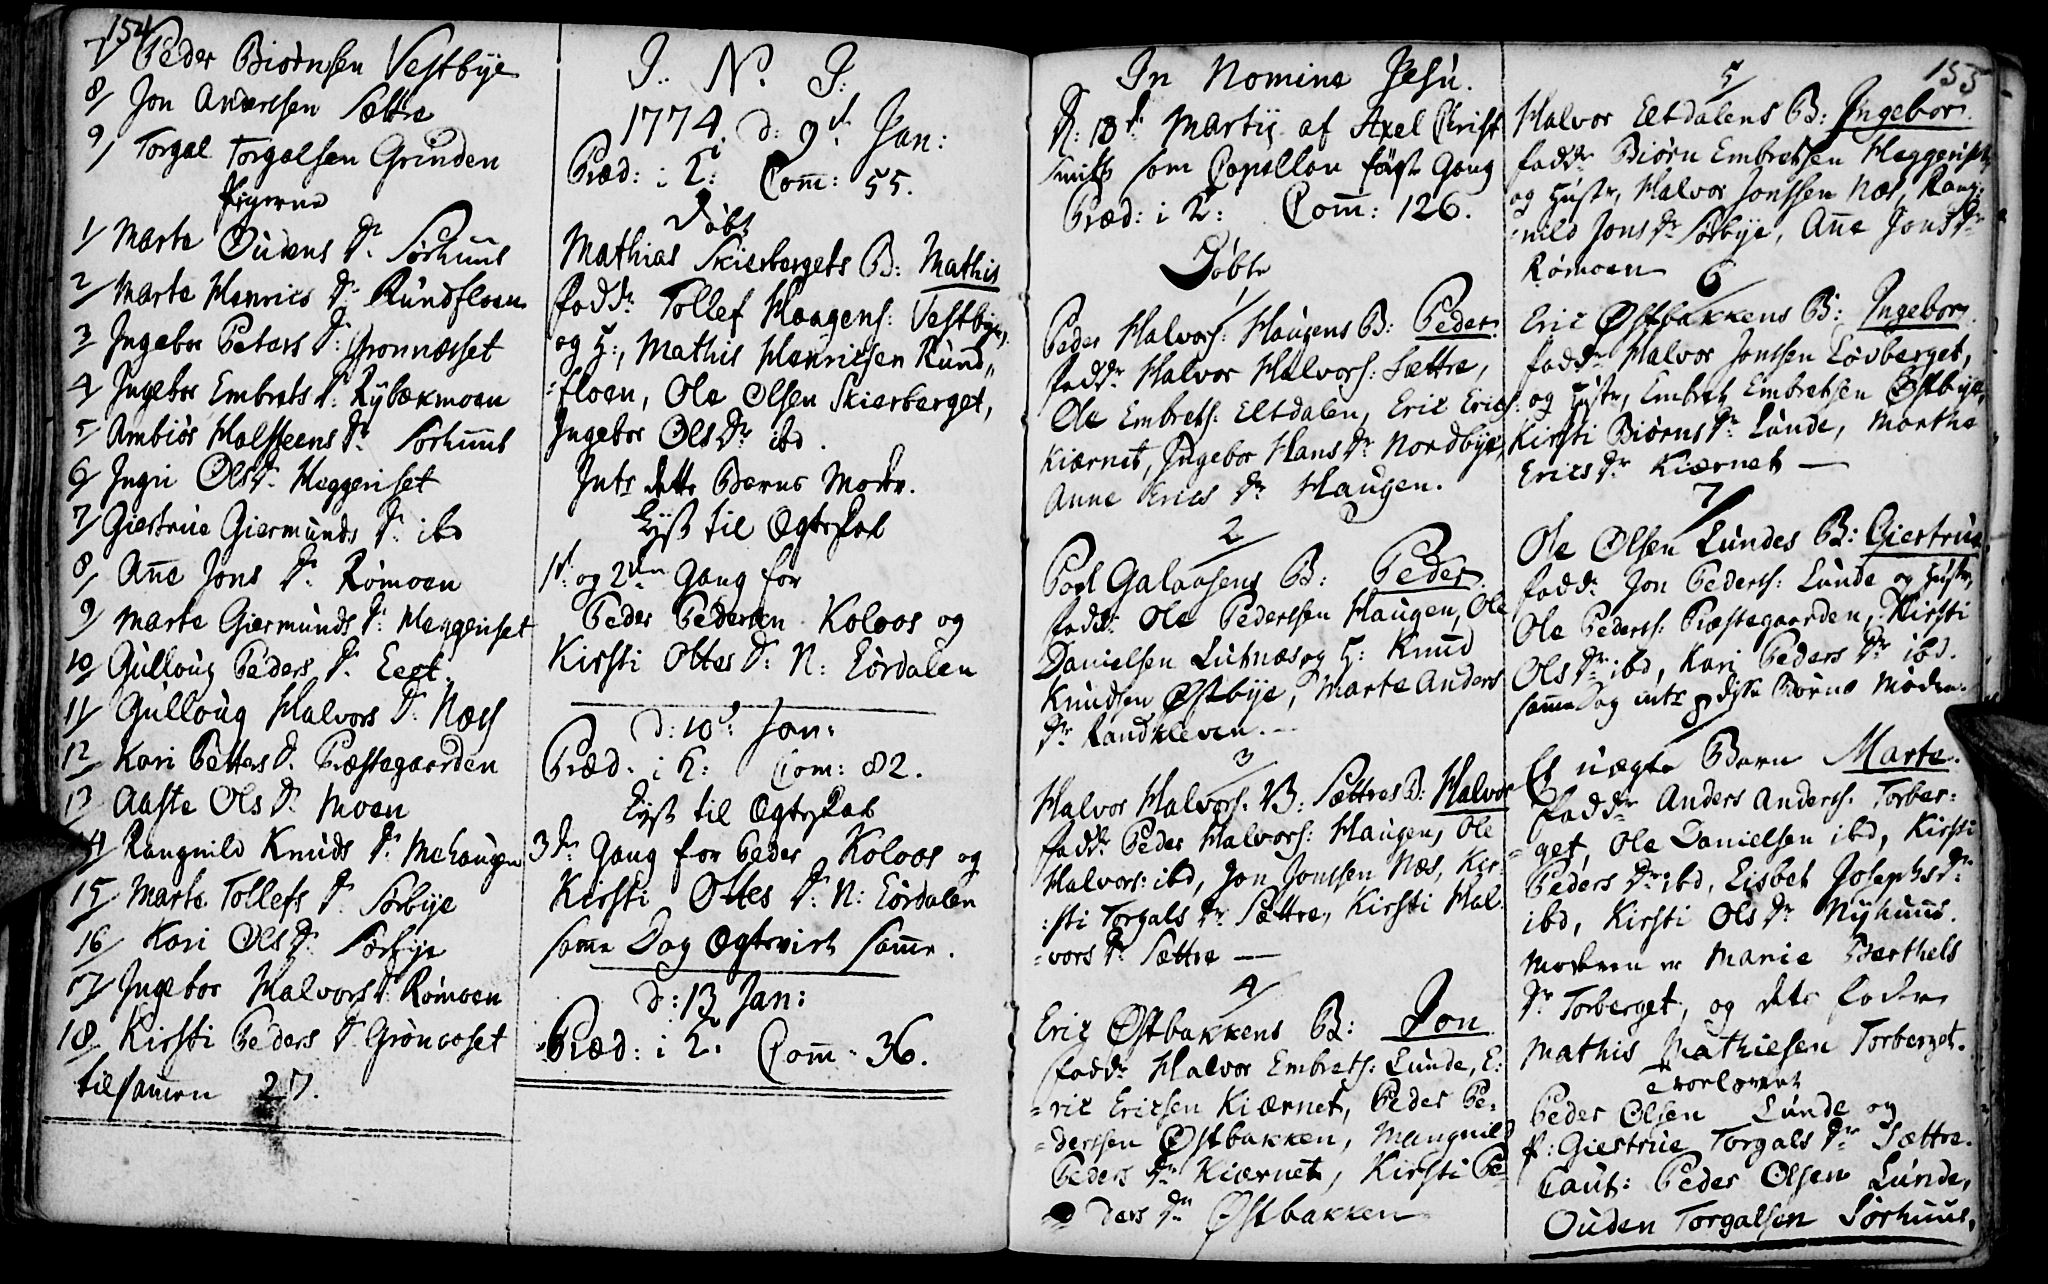 154
7/ Peder Biørnsen Vestbye
8/ Jon Anderssen Sættre
9/ Torgal Torgalsen Grinden
Pigerne
1/ Marte Oudens Dr. Sørhuus
2/ Marte Henrics Dr. Rundfloen
3/ Ingebor Peters Dr. Gronnæsset
4/ Ingebor Embrets Dr. Rybækmoen
5/ Ambiør Halsteens Dr. Sørhuus
6/ Ingri Ols Dr. Heggeriset
7/ Giertrue Giermunds Dr. ibd
8/ Aṅe Jons Dr. Rømoen
9/ Marte Giermunds Dr. Heggeriset
10/ Gulloug Peders Dr. Eegt.
11/ Gulloug Halvors Dr. Næss
12/ Kari Petters Dr. Præstegaarden
13/ Aaste Ols Dr. Moen
14/ Rangnild Knuds Dr. Mehaugen
15/ Marte Tollefs Dr. Sørbye
16/ Kari Ols Dr. Sørbye
17/ Ingebor Halvors Dr. Rømoen
18/ Kirsti Peders Dr. Grönoset
tilsamen 27.
J.. N. J:
1774. d: 9d. Jan:
Præd: i K: Com̄: 55.
Døbt
Mathias Skierbergets B: Mathis
Fadd: Tollef Haagens: Vestbye,
og H:, Mathis Henricsen Rund,,
:floen, Ole Olsen Skierberget,
Ingebor Ols Dr. ibd.
Intr. dette Barns Moder.
Lyst til Ægteskab
1st. og 2den Gang for
Peder Pedersen Koloos og
Kirsti Ottes D: N: Lørdalen
d: 10d: Jan:
Præd: i K: Com: 82.
Lyst til Ægteskab
3die Gang for Peder Koloos og
Kirsti Ottes D: N: Lørdalen
Samme Dag Ægteviet Samme.
d: 13 Jan:
Præd: i K: Com̄: 36.
In Nomine Jesu.
D: 13d. Martij af Axel Christ
Smith som Capellan først Gang
Præd: i K: Com̄: 126.
Døbt
1/
Peder Halvors: Haugens B: Peder.
Fadd: Halvor Halvors: Sættre,
Ole Embrets: Eltdalen, Eric Erics:
Kiærnet, Ingebor Hans Dr. Nordbye,
Anne Erics Dr. Haugen.
2/
Poel Galaasens B: Peder.
Fadd: Ole Pedersen Haugen, Ole
Danielsen Lutnæs og H: Knud
Knudsen Østbye, Marte Anders
Dr. Randkleven.
3/
Halvor Halvors: N: Sættres B: Halvor
Fadd: Peder Halvors: Haugen, Ole
Halvors: ibd, Jon Jonssen Næs, Kir:
:sti Torgals Dr. Sættre, Kirsti Hal
=vors Dr. Sættre
4/
Eric Østbakkens B: Jon
Fadd: Halvor Embrets: Lunde, E:
=ric Ericsen Kiærnet, Peder Pe:
=dersen Østbakken, Mangnild
Peders Dr. Kiærnet, Kirsti Pe
ders Dr. Østbakken
155
5/
Halvor Eltdalens B: Ingebor.
Fadd: Biørn Embretsen Heggeriset
og Hustr, Halvor Jonssen Næs, Rang:
=nild Jons Dr. Sørbye, Aṅe Jons Dr.
Rømoen
6/
Eric Østbakkens B: Ingebor.
Fadd: Halvor Jonssen Løvberget,
og Hustr, Embret Embretsen Østbye,
Kirsti Biørns Dr. Lunde, Marthe
Erics Dr. Kiærnet
7/
Ole Olsen Lundes B: Giertrue.
Fadd: Jon Peders: Lunde og Hustr,
Ole Peders: Præstegaarden, Kirsti
Ols Dr. ibd, Kari Peders Dr. ibd.
Samme Dag intr. disse Børns Mødre.
8/
Et uægte Barn Marte.
Fadd: Anders Anders: Torber:
=get, Ole Danielsen ibd, Kirsti
Peders Dr. ibd, Lisbet Josephs Dr.
ibd, Kirsti Ols Dr. Nyhuus.
Moderen er Marie Barthels
Dr. Torberget, og dets Fader
Mathis Mathiesen Torberget.
Trovlovet
Peder Olsen Lunde og
P: Giertrue Torgals Dr. Sættre.
Caut: Peder Olsen Lunde,
Ouden Torgalsen Sørhuus.